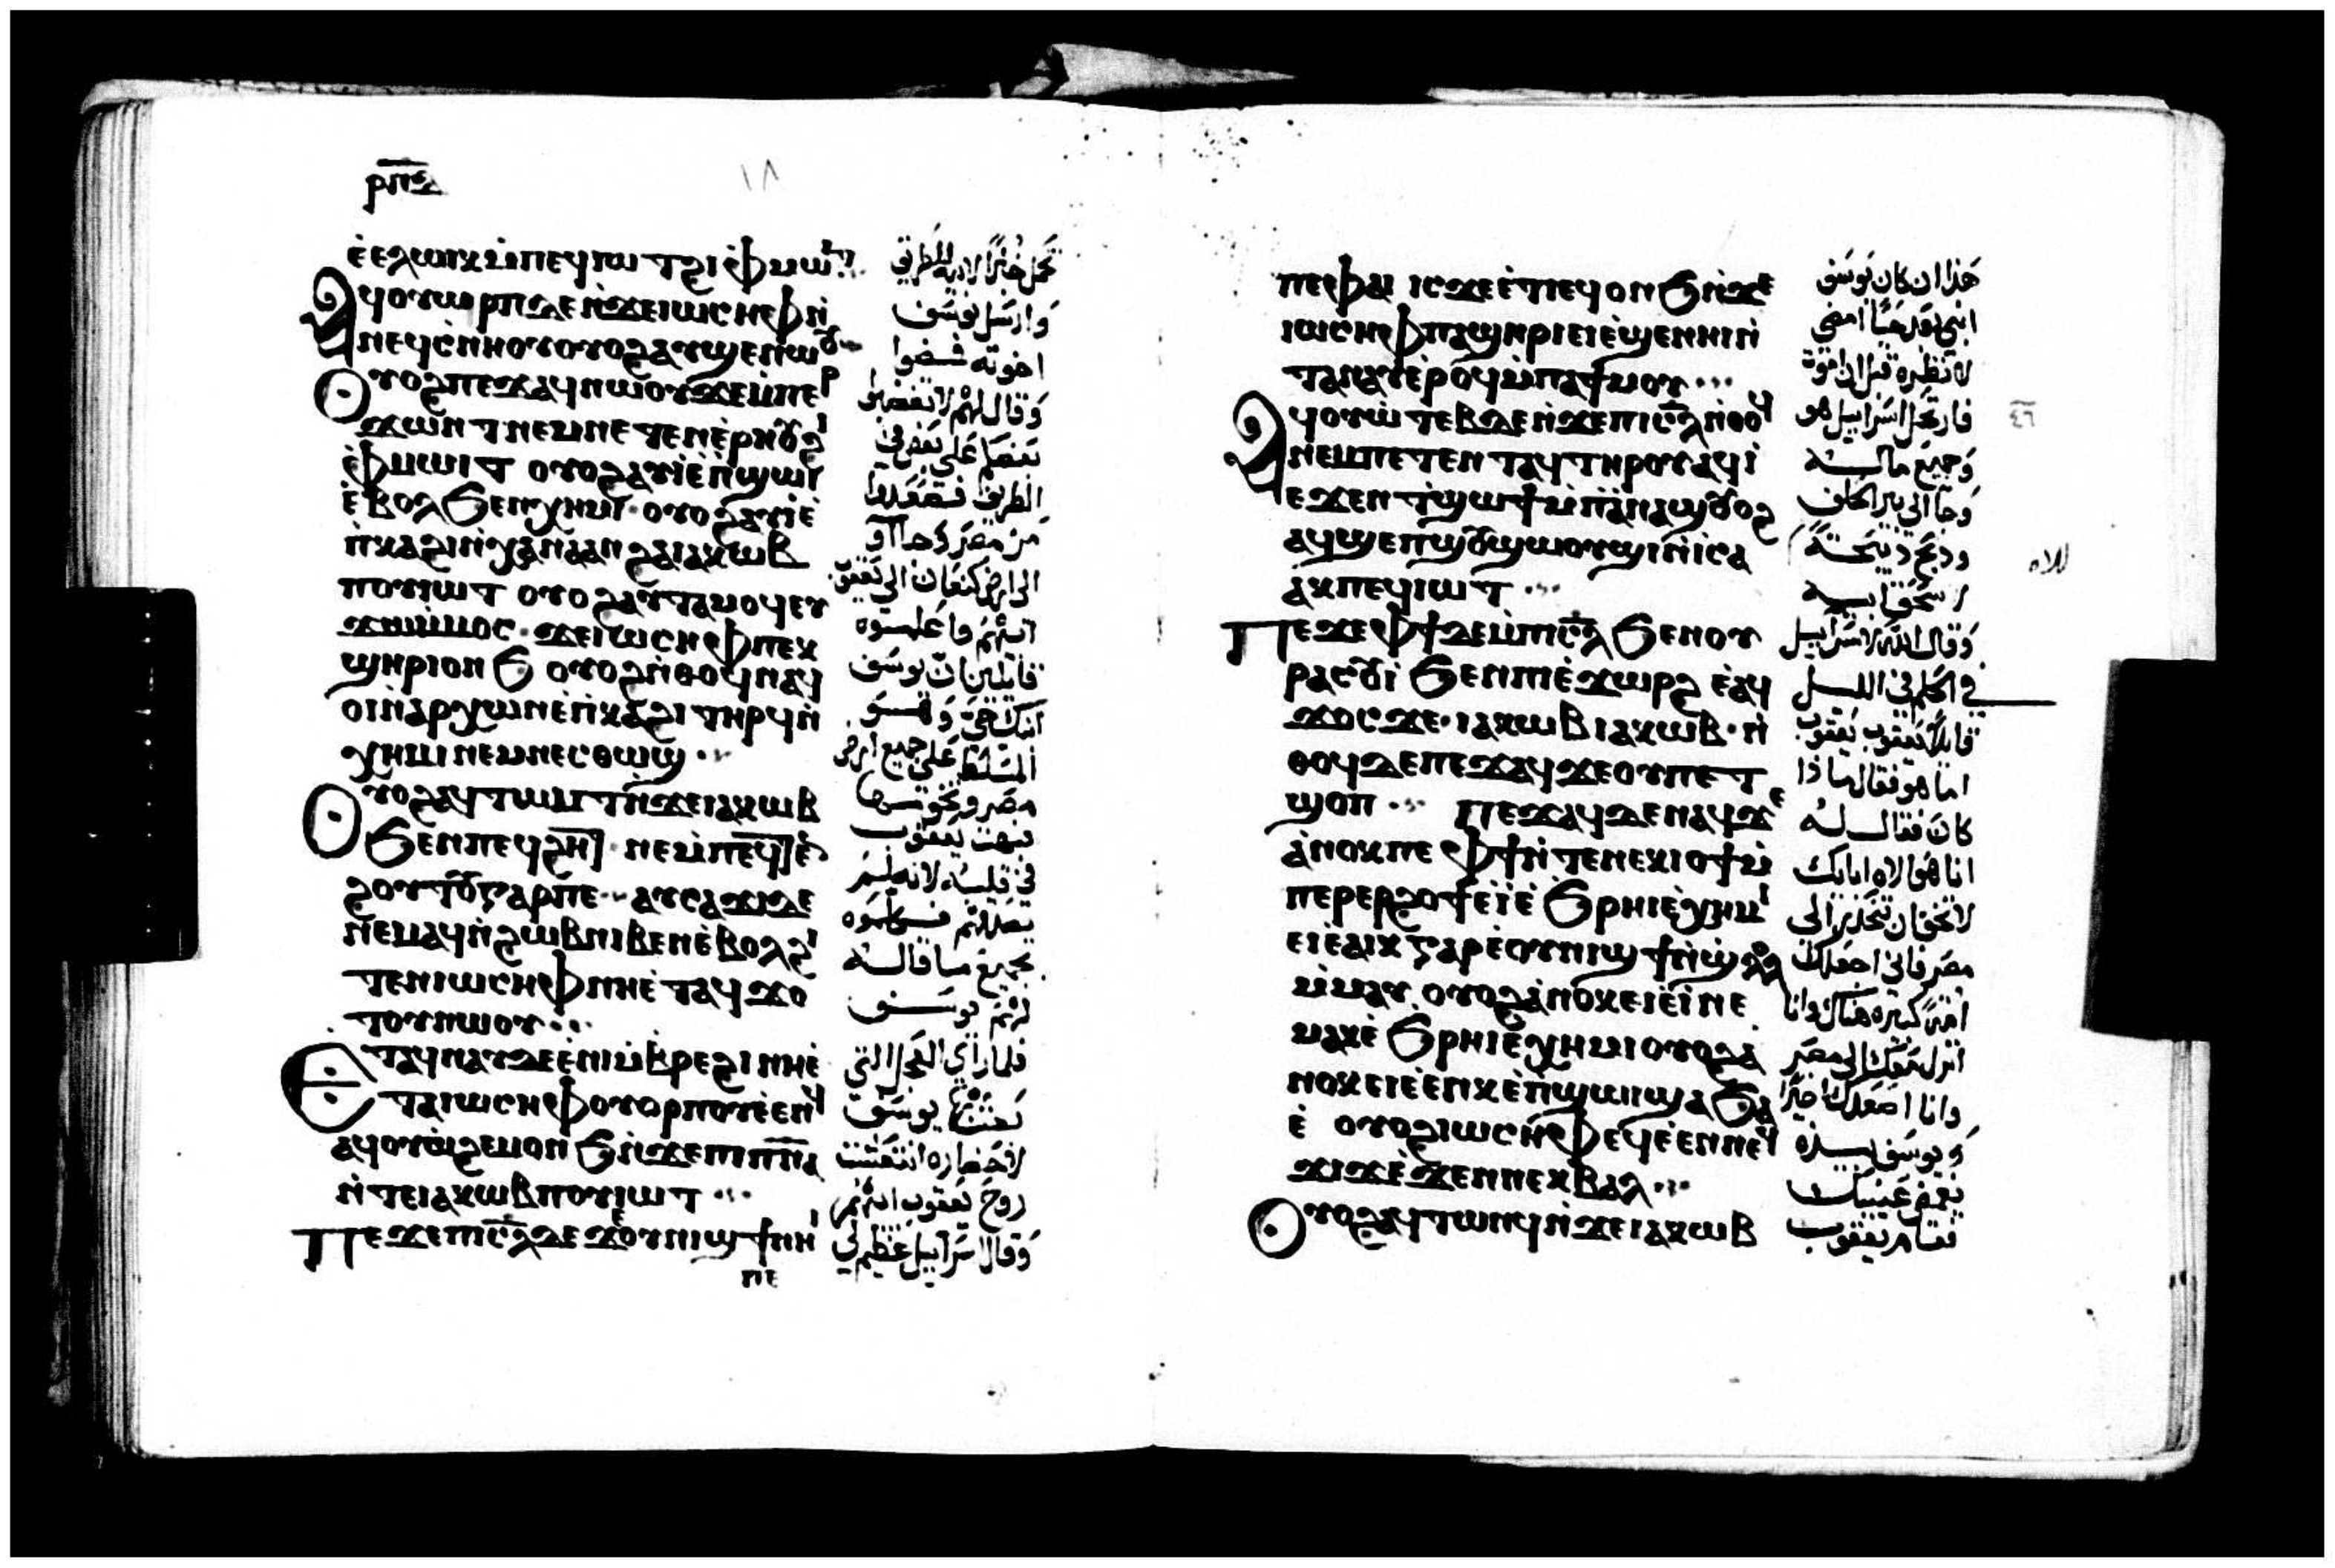 ⲣⲡⲇ
١٨
ⲉⲉⲗⲱⲓⲭ ⲙ̇ⲡⲉϥⲓⲱⲧ ϩⲓ ⲫⲙⲱⲓⲧ
Ⲁϥⲟⲩⲱⲣⲡ ⲇⲉ ⲛ̇ϫⲉ ⲓⲱⲥⲏⲫ ⲛ̇
ⲛⲉϥⲥ̇ⲛⲏⲟⲩ ⲟⲩⲟϩ ⲁⲩϣⲉⲛⲱⲟⲩ
Ⲟⲩⲟϩ ⲡⲉϫⲁϥ ⲛⲱⲟⲩ ϫⲉ ⲙ̇ⲡⲉⲣ
ϫⲱⲛⲧ ⲛⲉⲙ ⲛⲉⲧⲉⲛⲉ̇ⲣⲏⲟⲩ ϩⲓ
ⲫⲙⲱⲓⲧ ⲟⲩⲟϩ ⲁⲩⲓ̇ ⲉ̇ⲡ̇ϣⲱⲓ
ⲉ̇ⲃⲟⲗ ϧⲉⲛ ⲭⲏⲙⲓ ⲟⲩⲟϩ ⲁⲩⲓ̇ ⲉ̇
ⲡ̇ⲕⲁϩⲓ ⲛ̇ⲭⲁⲛⲁⲁⲛ ϩⲁ ⲓⲁⲕⲱⲃ
ⲡⲟⲩⲓⲱⲧ ⲟⲩⲟϩ ⲁⲩⲧⲁⲙⲟϥ ⲉⲩ
ϫⲱⲙ̇ⲙⲟⲥ ϫⲉ ⲓⲱⲥⲏⲫ ⲡⲉⲕ
ϣⲏⲣⲓ ⲟⲛϧ ⲟⲩⲟϩ ⲛ̇ⲑⲟϥ ⲛⲁϥ
ⲟⲓ ⲛ̇ⲁⲣⲭⲱⲛ ⲉ̇ⲡ̇ⲕⲁϩⲓ ⲧⲏⲣϥ ⲛ̇
ⲭⲏⲙⲓ ⲛⲉⲙ ⲛⲉⲥⲑⲱϣ
Ⲟⲩⲟϩ ⲁϥⲧⲱⲙⲧ ⲛ̇ϫⲉ ⲓⲁⲕⲱⲃ
ϧⲉⲛ ⲡⲉϥϩⲏⲧ
ϩⲟⲩⲧⲟⲩ ⲅⲁⲣ ⲡⲉ ⲁⲩⲥⲁϫⲓ ⲇⲉ
ⲛⲉⲙⲁϥ ⲛ̇ϩⲱⲃ ⲛⲓⲃⲉⲛ ⲉ̇ⲃⲟⲗϩⲓ
ⲧⲉⲛ ⲓⲱⲥⲏⲫ ⲛⲏ ⲉ̇ⲧⲁϥϫⲟ
ⲧⲟⲩ ⲛⲱⲟⲩ
Ⲉⲧⲁϥⲛⲁⲩ ⲇⲉ ⲉ̇ⲛⲓⲙ̇ⲃⲣⲉϩⲓ ⲛⲏ ⲉ̇
ⲧⲁ ⲓⲱⲥⲏⲫ ⲟⲩⲟⲣⲡⲟⲩ ⲉ̇ⲉⲛϥ
ⲁϥⲟⲩⲱϩⲉⲙ ⲟⲛϧ ⲛ̇ϫⲉ ⲡⲓⲡⲛⲁ
ⲛ̇ⲧⲉ ⲓⲁⲕⲱⲃ ⲡⲟⲩⲓⲱⲧ
Ⲡⲉϫⲉ ⲡⲓⲥⲗ ⲇⲉ ϫⲉ ⲟⲩⲛⲓϣϯ ⲛⲏⲓ
ⲡⲉ
تحمل خبزًا لابيه للطريق
وارسل يوسف
اخوته فمضوا
وقال لهم لا تغضبوا
بعضا على بعض في
الطريق فصعدوا
من مصر وجاآو
الى ارض كنعان الى يعقوب
ابيهم واعلموه
قايلين ان يوسف
ابنك حي وهو
المسلط على جميع ارض
مصر وتخومها
فبهت يعقوب
في قلبه لانه لم
يصدقهم فكلموه
بجميع ما قاله
لهم يوسف
فلما راي العجل التي
بعثها يوسف
لاحضاره انتعشت
روح يعقوب ابيهم
وقال اسراييل عظيم لي
ⲡⲉ ⲫⲁⲓ ⲓⲥϫⲉ ⲉ̇ⲧⲓ ⲉϥⲟⲛϧ ⲛ̇ϫⲉ
ⲓⲱⲥⲏⲫ ⲡⲁϣⲏⲣⲓ ⲉⲓⲉ̇ϣⲉⲛⲏⲓ ⲛ̇
ⲧⲁⲛⲁⲩ ⲉ̇ⲣⲟϥ ⲙ̇ⲡⲁϯⲙⲟⲩ
Ⲁϥⲟⲩⲱⲧⲉⲃ ⲇⲉ ⲛ̇ϫⲉ ⲡⲓⲥⲗ ⲛ̇ⲑⲟϥ
ⲛⲉⲙ ⲡⲉⲧⲉⲛⲧⲁϥ ⲧⲏⲣⲟⲩ ⲁϥⲓ̇
ⲉϫⲉⲛ ϯϣⲱϯ ⲙ̇ⲡⲁⲛⲁϣ ⲟⲩⲟϩ
ⲁϥϣⲉⲧ ϣⲟⲩϣⲱⲟⲩϣⲓ ⲛ̇ⲓⲥⲁ
ⲁⲕ ⲡⲉϥⲓⲱⲧ
Ⲡⲉϫⲉ ⲫϯ ⲇⲉ ⲙ̇ⲡⲓⲥⲗ ϧⲉⲛ ⲟⲩ
ⲣⲁⲥⲟⲩⲓ̇ ϧⲉⲛ ⲡⲓⲉ̇ϫⲱⲣϩ ⲉ̇ⲁϥ
ϫⲟⲥ ϫⲉ ⲓⲁⲕⲱⲃ ⲓⲁⲕⲱⲃ ⲛ̇
ⲑⲟϥ ⲇⲉ ⲡⲉϫⲁϥ ϫⲉ ⲟⲩ ⲡⲉⲧ
ϣⲟⲡ ⲡⲉϫⲁϥ ⲇⲉ ⲛⲁϥ ϫⲉ
ⲁ̇ⲛⲟⲕ ⲡⲉ ⲫϯ ⲛ̇ⲧⲉ ⲛⲉⲕⲓⲟϯ ⲙ̇
ⲡⲉⲣⲉⲣϩⲟϯ ⲉ̇ⲓ̇ ⲉ̇ϧⲣⲏⲓ ⲉ̇ⲭⲏⲙⲓ
ⲉⲓⲉ̇ⲁⲓⲕ ⲅⲁⲣ ⲉ̇ⲟⲩⲛⲓϣϯ ⲛ̇ϣⲗⲟⲗ
ⲙ̇ⲙⲁⲩ ⲟⲩⲟϩ ⲁ̇ⲛⲟⲕ ⲉⲓⲉ̇ⲓ̇ ⲛⲉ
ⲙⲁⲕ ⲉ̇ϧⲣⲏⲓ ⲉ̇ⲭⲏⲙⲓ ⲟⲩⲟϩ ⲁ̇
ⲛⲟⲕ ⲉⲓⲉ̇ⲉⲛⲕ ⲉ̇ⲡ̇ϣⲱⲓ ϣⲁ ϧⲁ
ⲉ̇ ⲟⲩⲟϩ ⲓⲱⲥⲏⲫ ⲉϥⲉ̇ⲉⲛ ⲛⲉϥ
ϫⲓϫ ⲉ̇ϫⲉⲛ ⲛⲉⲕⲃⲁⲗ
Ⲟⲩⲟϩ ⲁϥⲧⲱⲛϥ ⲛ̇ϫⲉ ⲓⲁⲕⲱⲃ
هذا ان كان يوسف
ابني بعد حيًا امضي
لانظره قبل ان اموت
فارتحل اسراييل هو
وجميع ماله
وجآ الى بير الحلف
وذبح ذبيحة
لاسحق ابيه
وقال الله لاسراييل
في الحلم في الليل
قايلًا يعقوب يعقوب
اما هو فقال ماذا
كان فقال له
انا هو الاه ابايك
لا تخف ان تنحدر الى
مصر فاني اجعلك
امة كبيرة هناك وانا
انزل معك الى مصر
وانا اصعدك اخيرًا
ويوسف يديه
يضع عينيك
فقام يعقوب
٤٦